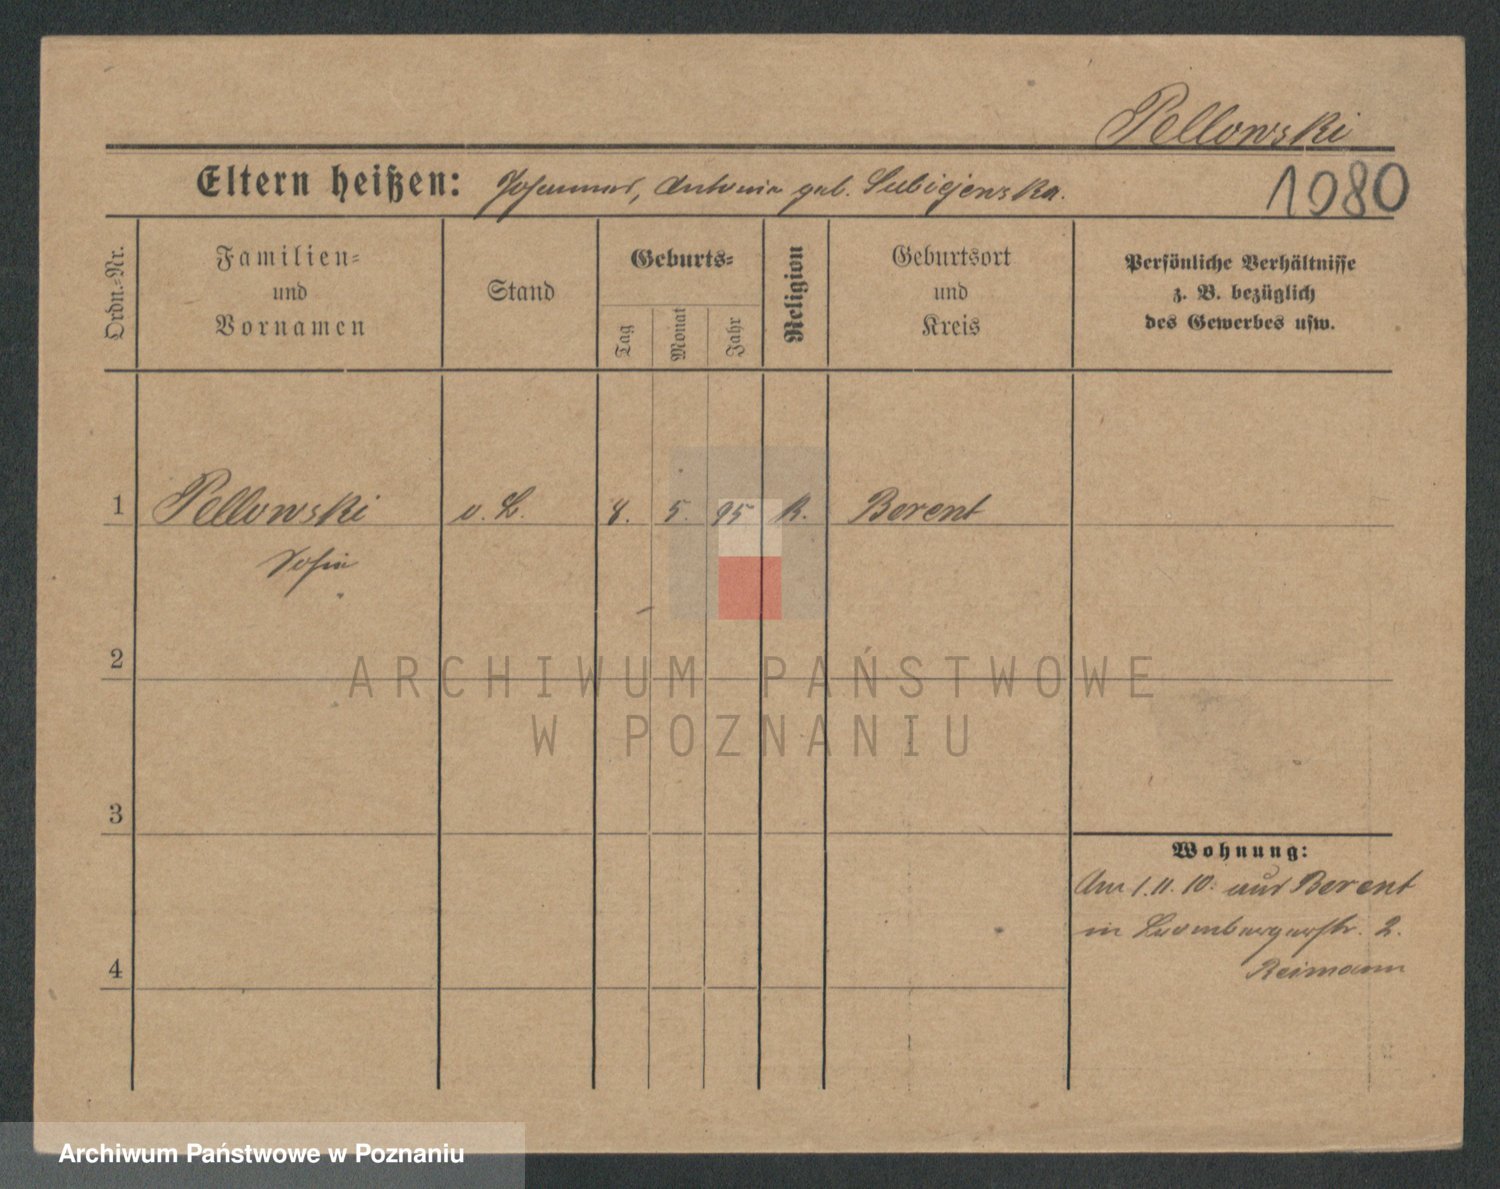 Pellowski
Eltern heißen: Johannes, Antonia geb. Subigjenska.
1980
Ordn.=Nr.
Familien=
und
Vornamen
Stand
Geburts=
Tag
Monat
Jahr
Religion
Geburtsort
und
Kreis
Persönliche Verhältnisse
z. B. bezüglich
des Gewerbes usw.
1 Pellowski o. L. 8. 5. 95 K. Berent
Sofie
2
ARCHIWUM PAŃSTWOWE
W POZNANIU
3
Wohnung:
Am 1.11.10. aus Berent
in 2.
Reimann
4
Archiwum Państwowe w Poznaniu